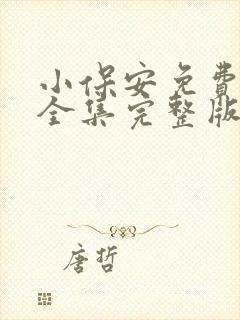 小保安免费
全集完整版
唐哲